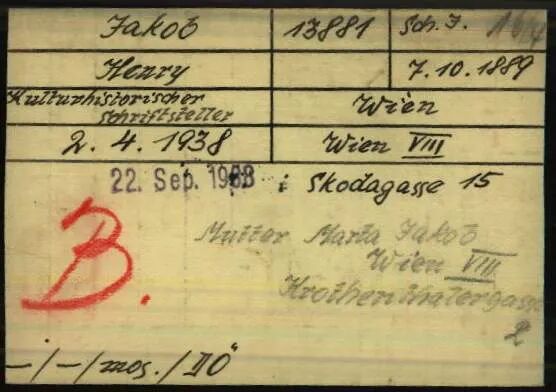 Jakob 13881 Sch. J.
Henry 7.10.1889
Kulturhistorischer
Schriftsteller Wien
2. 4. 1938 Wien VIII
22. Sep. 1938 ; Skodagasse 15
B.
Mutter Marta Jakob
Wien VIII
Krothenthalergasse
2
—/—/mos./DÖ